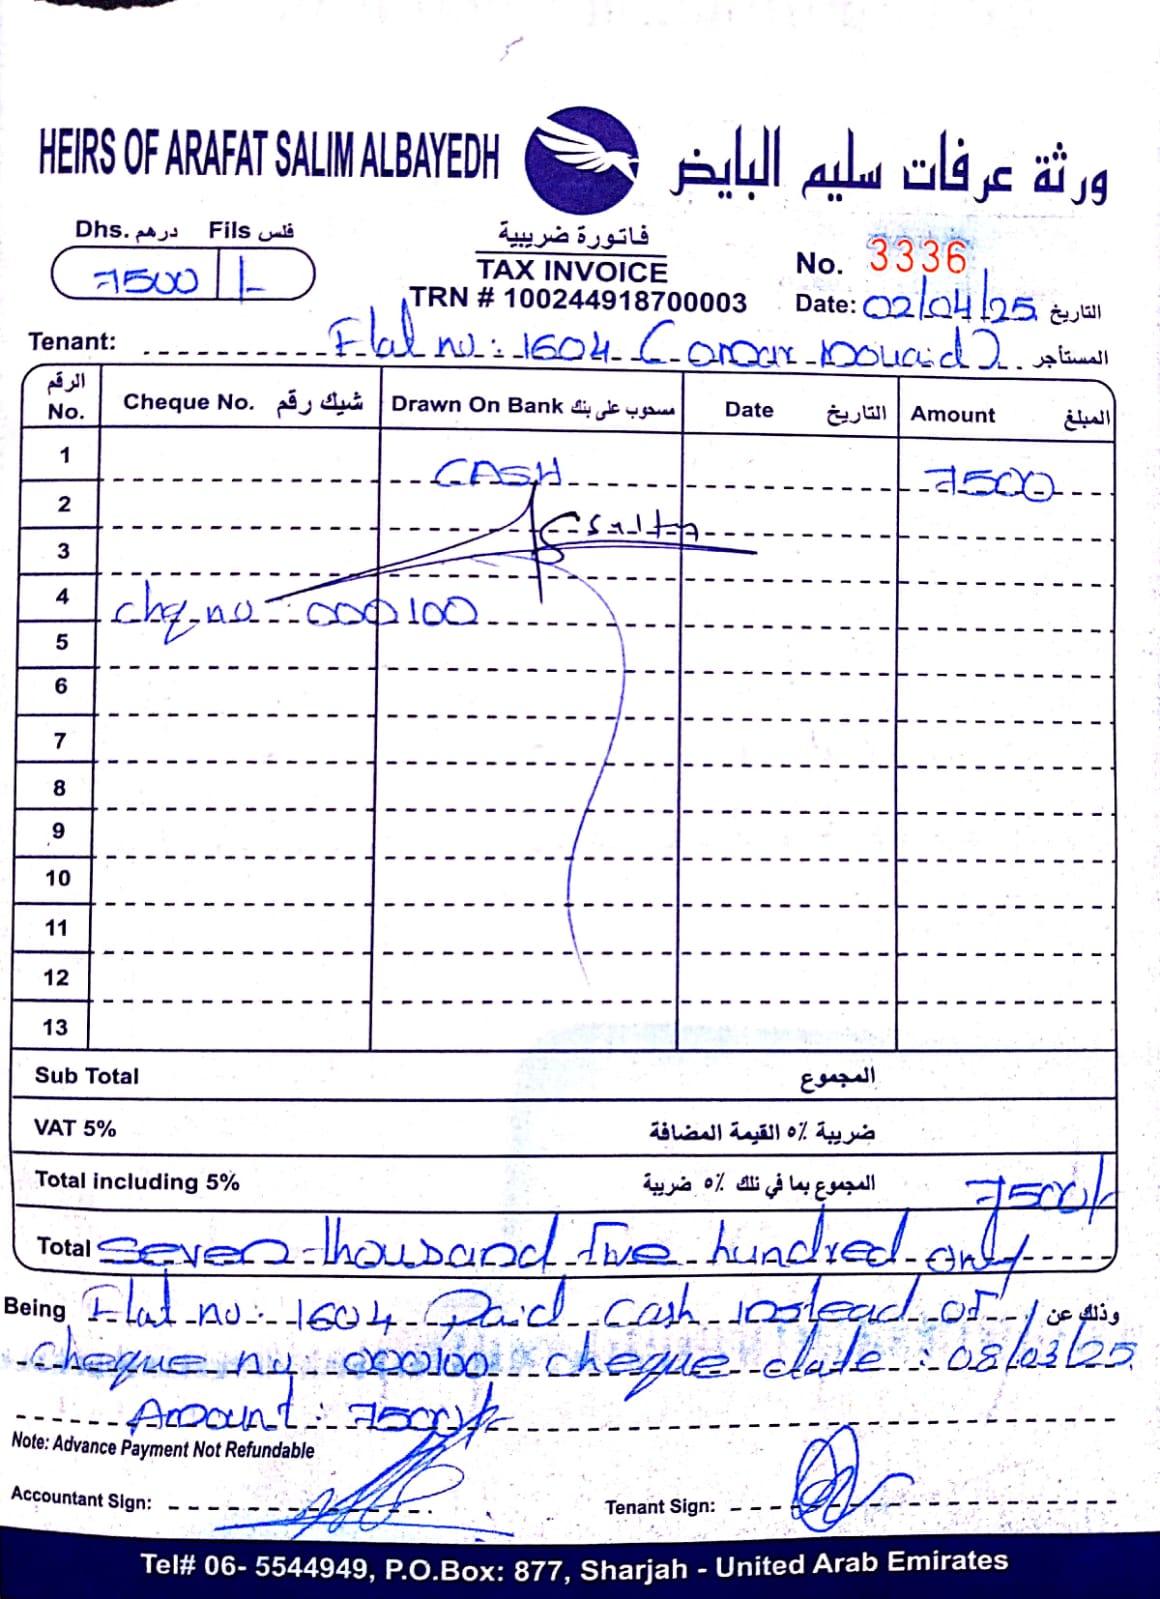 HEIRS OF ARAFAT SALIM ALBAYEDH ورثة عرفات سليم البايض
Dhs. درهم Fils فلس
7500 /-
فاتورة ضريبية
TAX INVOICE
TRN # 100244918700003
No. 3336
Date: 02/04/25 التاريخ
Tenant: Flat no: 1604 المستأجر
الرقم No. Cheque No. شيك رقم Drawn On Bank مسحوب على بنك Date التاريخ Amount المبلغ
1 CASH 7500
2
3
4 chq no: 000100
5
6
7
8
9
10
11
12
13
Sub Total المجموع
VAT 5% ضريبة ٥% القيمة المضافة
Total including 5% المجموع بما في ذلك ٥% ضريبة 7500/-
Total Seven thousand five hundred only/
Being Flat no: 1604 Paid cash instead of وذلك عن
cheque no 000100 cheque date: 08/03/25
Amount: 7500/-
Note: Advance Payment Not Refundable
Accountant Sign: Tenant Sign:
Tel# 06- 5544949, P.O.Box: 877, Sharjah - United Arab Emirates